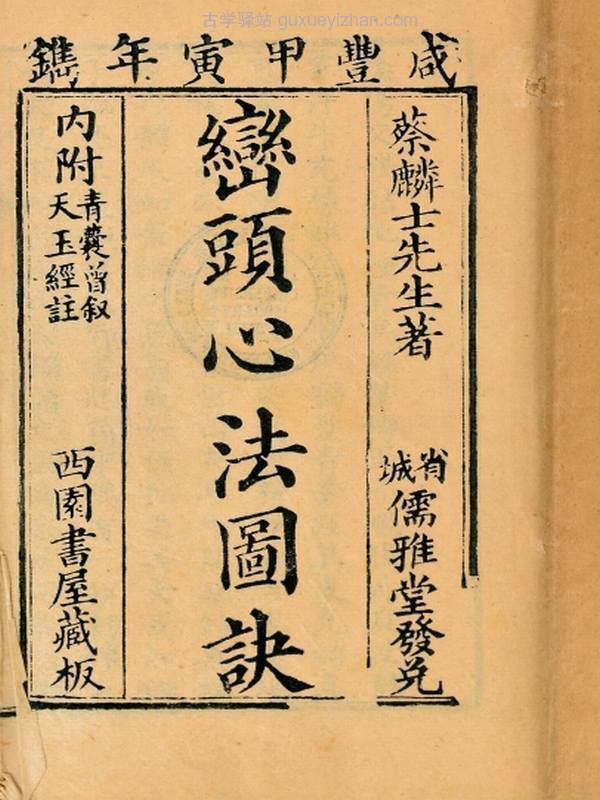 古学驿站 guxueyizhan.com
咸豐甲寅年鐫
蔡麟士先生著
省城儒雅堂發兌
巒頭心法圖訣
内附
青囊曾叙
天玉經註
西園書屋藏板